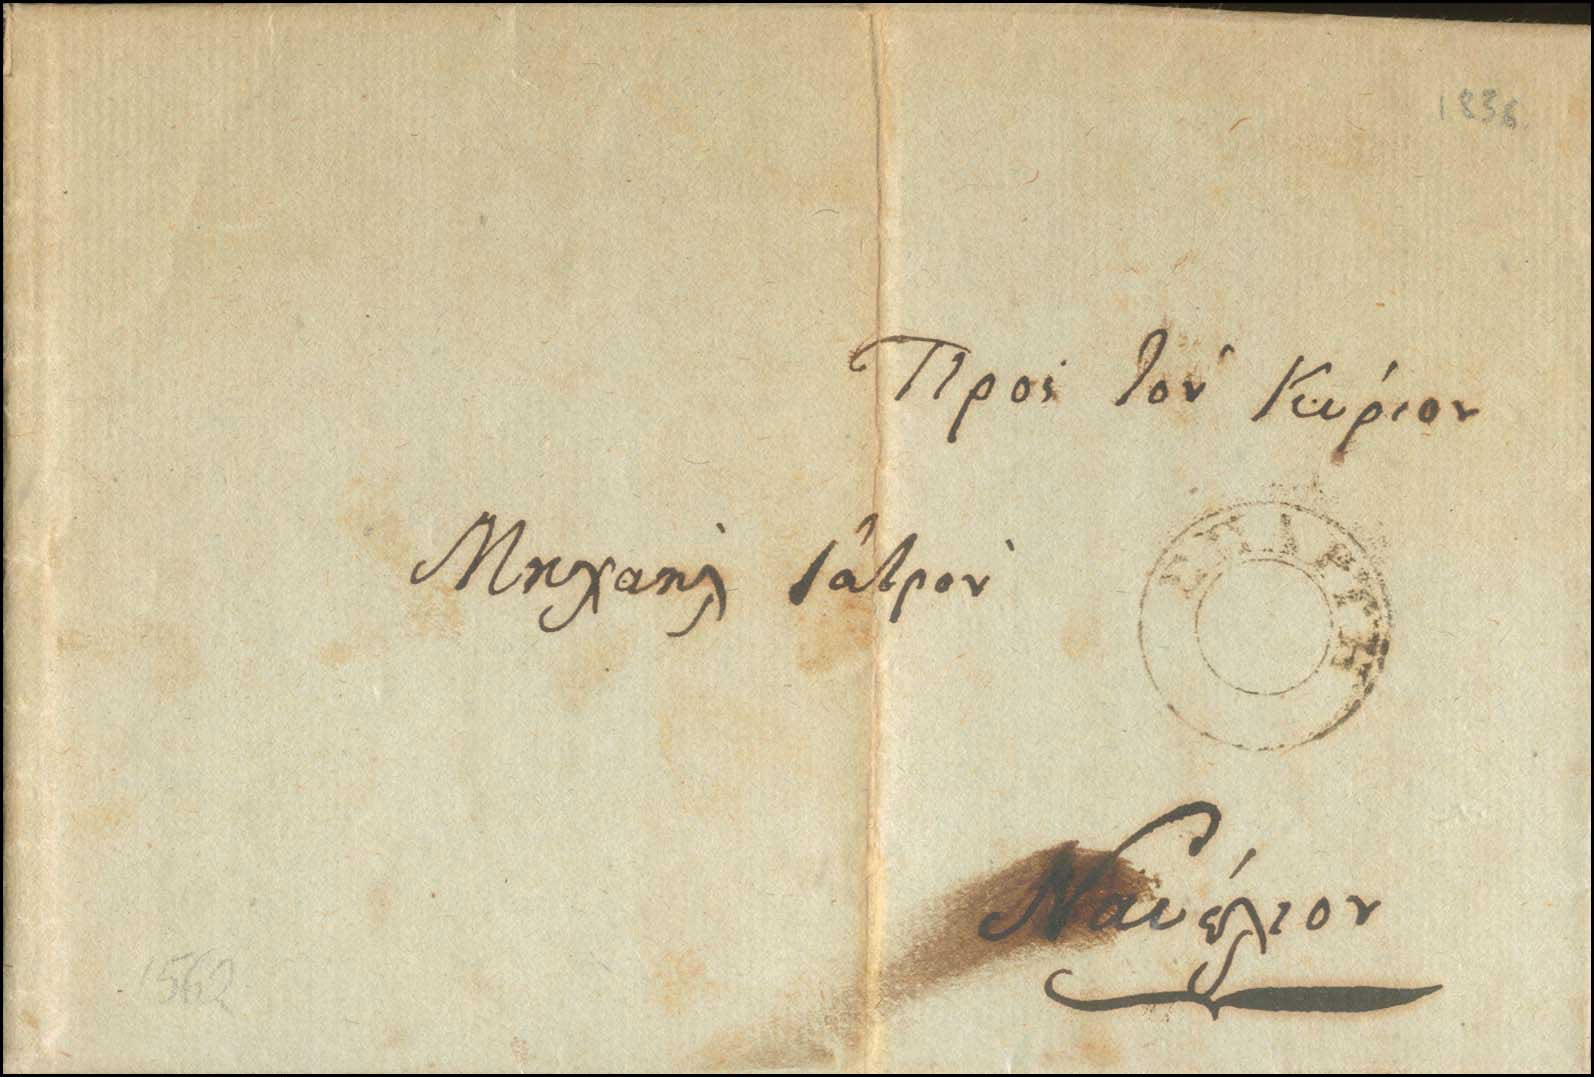 1836
Προς τον Κύριον
Μηχαὴλ Ιάτρὸν
ΣΠΑΡΤΗ
Ναύπλιον
1562